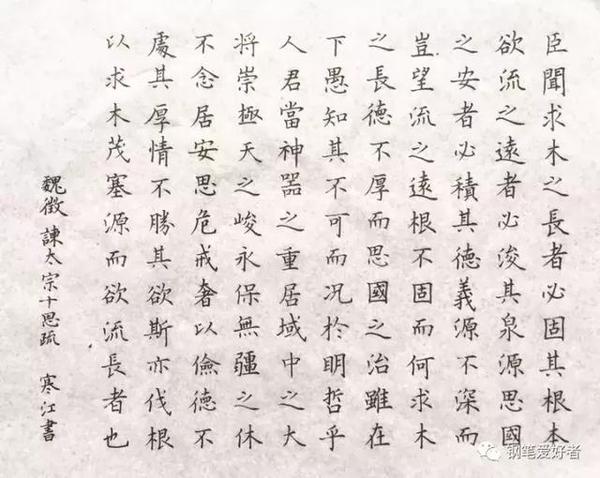 臣聞求木之長者必固其根本
欲流之遠者必浚其泉源思國
之安者必積其德義源不深而
豈望流之遠根不固而何求木
之長德不厚而思國之治雖在
下愚知其不可而况於明哲乎
人君當神噐之重居域中之大
将崇極天之峻永保無疆之休
不念居安思危戒奢以儉德不
處其厚情不勝其欲斯亦伐根
以求木茂塞源而欲流長者也
魏徵諫太宗十思疏 寒江書
钢笔爱好者